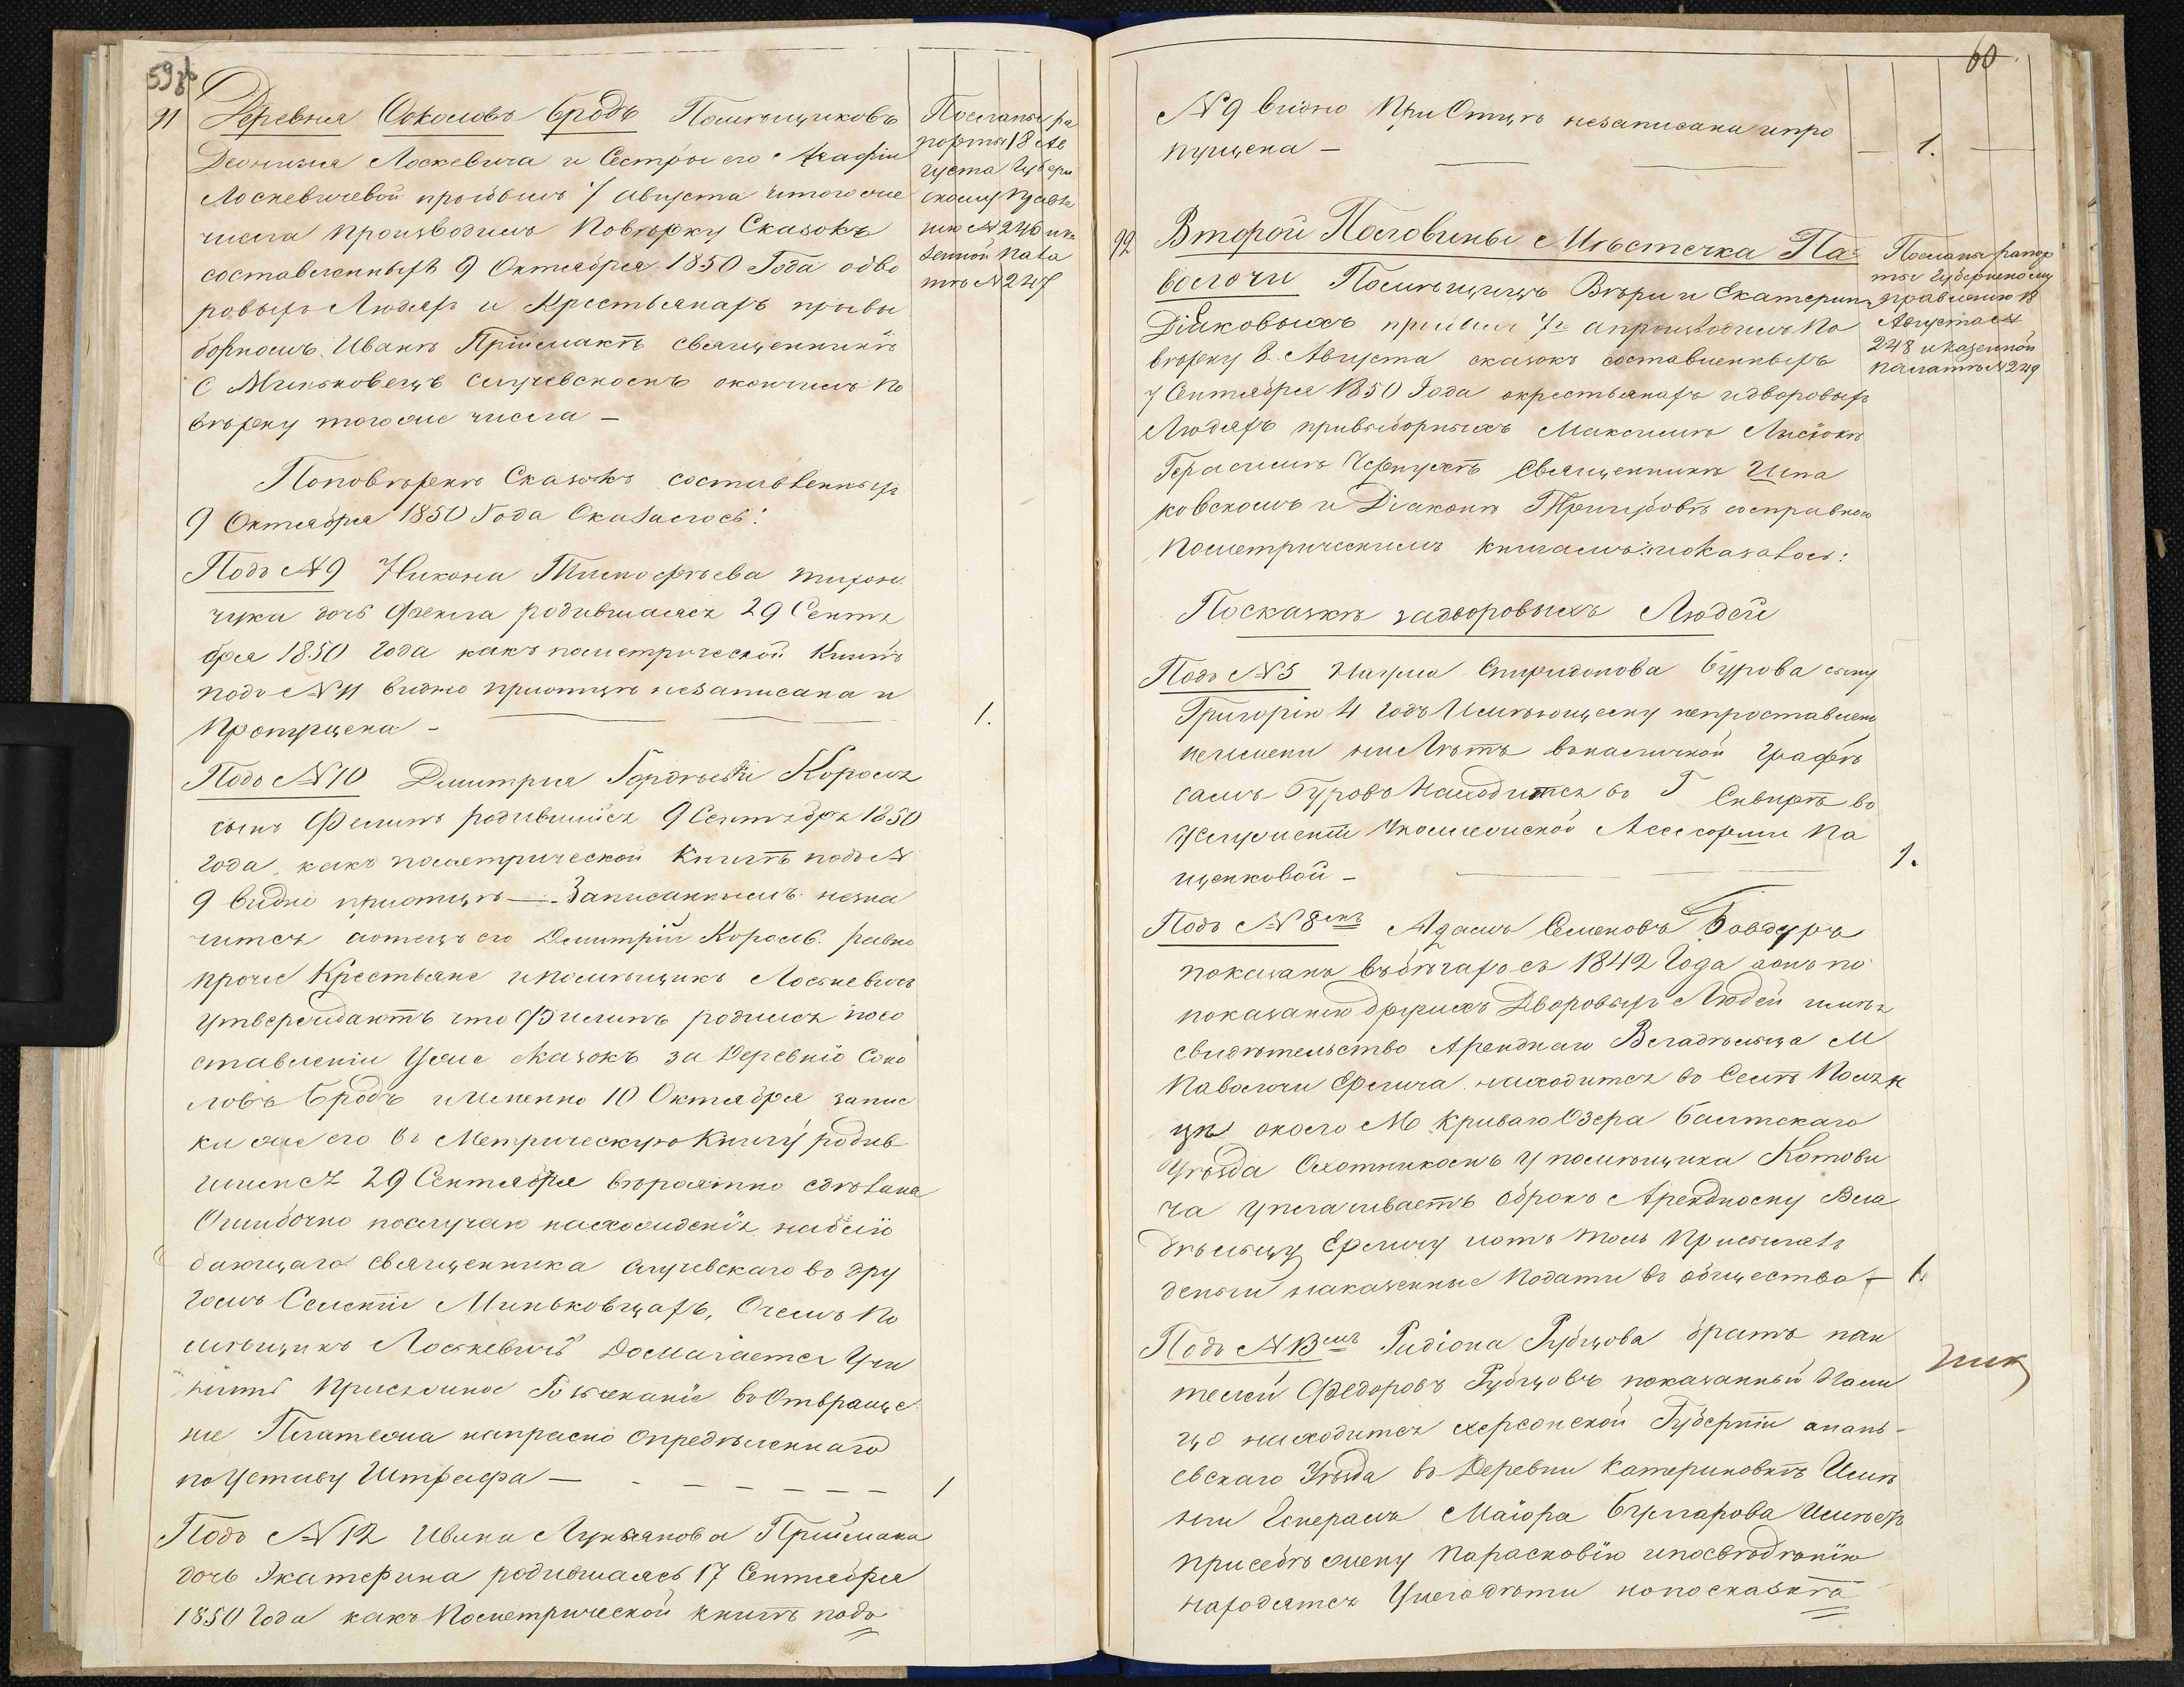 59
91
Деревня Соколовъ бродъ Помѣщиковъ
Деонизія Лоскевича и Сестры его Агафіи
Лоскевичевой прибылъ 7 августа итого же
числа производилъ повѣрку Сказокъ
составленныхъ 9 Октября 1850 Года о дво
ровыхъ Людяхъ и Крестьянахъ при вы
борномъ Иванѣ Пріймакѣ священникѣ
с Миньковецъ окончилъ по
вѣрку того же числа —
Посланы ра
порты 18 Ав
густа Губерн
скому Правле
нію № 246 и Ка
зенной Пала
тѣ № 247
По повѣркѣ Сказокъ составленныхъ
9 Октября 1850 Года Оказалось:
Подъ № 9 Никона Тимофѣева
чука дочь Фекла родившаяся 29 Сентя
бря 1850 года какъ по метрической Книгѣ
подъ № 11 видно при отцѣ не записана и
Пропущена — 1.
Подъ № 10 Димитрія Гордѣева Короля
сынъ Филипъ родившійся 9 Сентября 1850
года, какъ по метрической Книгѣ подъ №
9 видно при отцѣ — Записаннымъ не зна
чится а отецъ его Димитрій Король равно
прочіе Крестьяне и помѣщикъ Лоскевичъ
утверждаютъ что Филипъ родился по со
ставленіи уже сказокъ за Деревню Соко
ловъ Бродъ именно 10 Октября запис
ки же его въ Метрическую Книгу родив
шимся 29 Сентября вѣроятно сдѣлана
Ошибочно по случаю нахожденія наблю
дающаго священника въ дру
гомъ Селеніи Миньковцахъ, О чемъ по
мѣщикъ Лоскевичъ Домагается учи
нить Присяжное Розысканіе въ Отвраще
ніе Платежа напрасно опредѣленнаго
по Уставу Штрафа — — — — — — — 1
Подъ № 12 Ивана Лукьянова Приймака
дочь Екатерина родившаяся 17 Сентября
1850 года какъ По метрической книгѣ подъ
60
№ 9 видно При Отцѣ не записана и про
пущена — — 1. —
92
Второй Половины Мѣстечка Па
волочи Помѣщицъ Вѣры и Екатерины
Діаковыхъ прибылъ 7го а производилъ По
вѣрку 8. Августа сказокъ составленныхъ
7 Сентября 1850 Года о крестьянахъ и дворовыхъ
Людяхъ при выборныхъ Максимѣ Лысюкѣ
Герасимѣ священникѣ Шпа
ковскомъ и Діаконѣ со справкою
По метрическимъ книгамъ и показалось:
Посланы рапор
ты Губернскому
правленію 18
Августа №
248 и Казенной
палатѣ № 249
По сказкѣ за дворовыхъ Людей
Подъ № 5 Наума Спиридонова Бурова сыну
Григорію 4 годъ Имѣющему не проставлено
ни имени ни Лѣтъ въ наличной графѣ
самъ Буровъ Находится въ Г Сквирѣ во
Услуженіи у Коллежской Асесорши Па
щенковой — 1.
Подъ № 8мъ Адамъ Семеновъ Бовдуръ
показанъ въ бѣгахъ съ 1842 Года а онъ по
показанію другихъ Дворовыхъ Людей имѣя
свидѣтельство Аренднаго Владѣльца М
Паволочи Ерлича находится въ Селѣ
цѣ около М Криваго Озера Балтскаго
Уѣзда Охотникомъ у помѣщика Котови
ча уплачиваетъ оброкъ Арендному Вла
дѣльцу Ерличу
деньги на казенные Подати въ общество — 1.
Подъ № 13мъ Родіона Рубцова братъ пан
телей Федоровъ Рубцовъ показанный Нали
цо находится херсонской Губерніи анань-
евскаго Уѣзда въ Деревни Катериновкѣ Имѣ
ніи Генералъ Маіора Булгарова Имѣетъ
при себѣ жену Парасковію и по свѣдѣнію
находятся у него дѣти но по сказкѣ